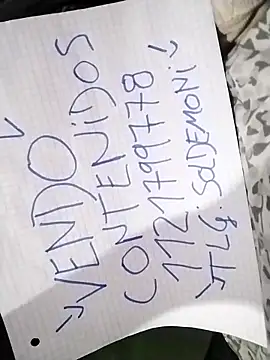 VENDO
CONTENiDOS
1121799778
TLG: SaDEMONi